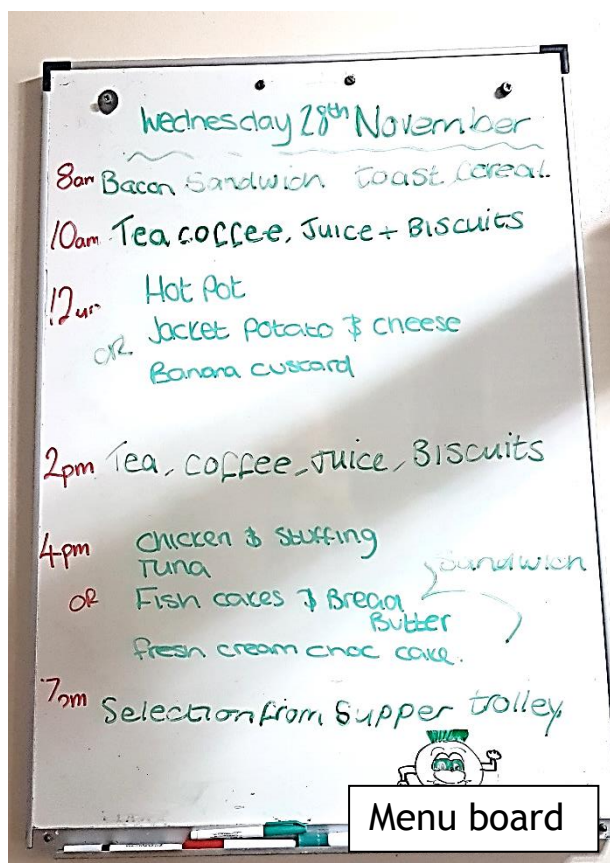 Wednesday 28th November
8am Bacon Sandwich toast Cereal.
10am Tea coffee, Juice + Biscuits
12
Hot Pot
OR Jacket Potato & cheese
Banana custard
2pm Tea, coffee, Juice, Biscuits
4pm Chicken & Stuffing
Tuna
Sandwich
OR Fish cakes & Bread
Butter
fresh cream choc cake.
7pm Selection from Supper trolley.
Menu board